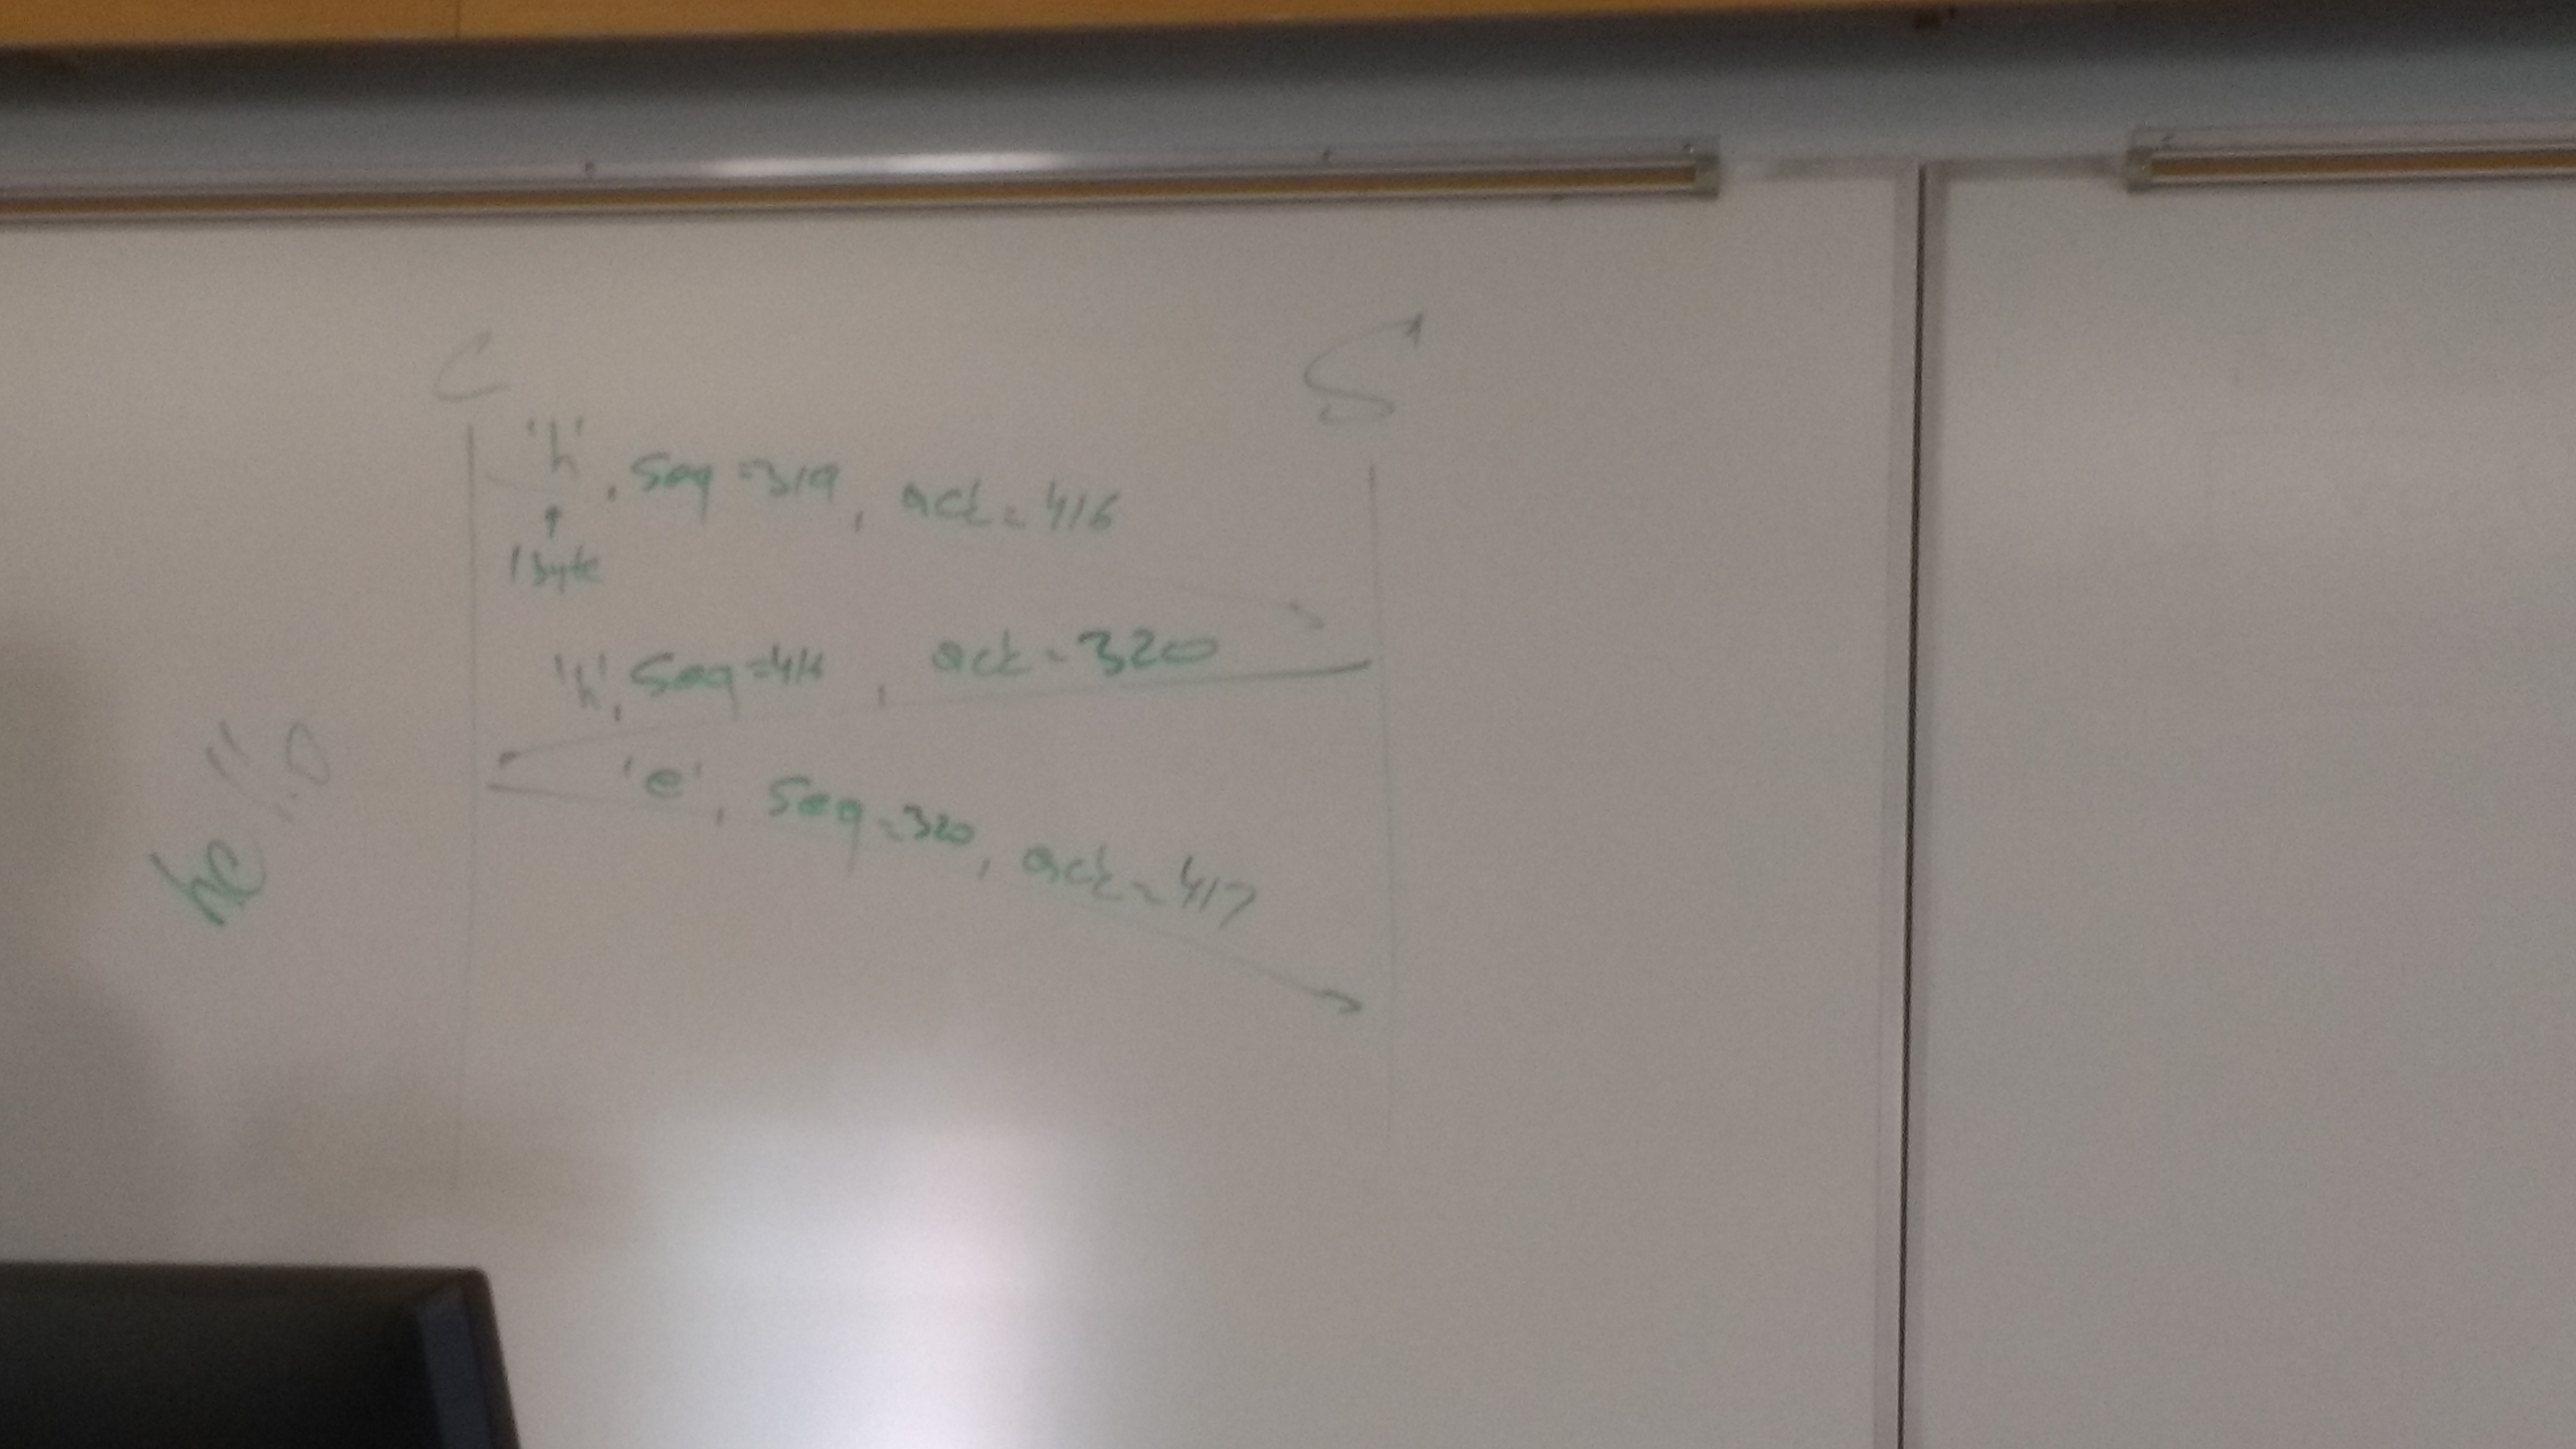 C S
'h', Seq=319, ack=416
1 byte
'h', Seq=416, ack=320
'e', Seq=320, ack=417
he